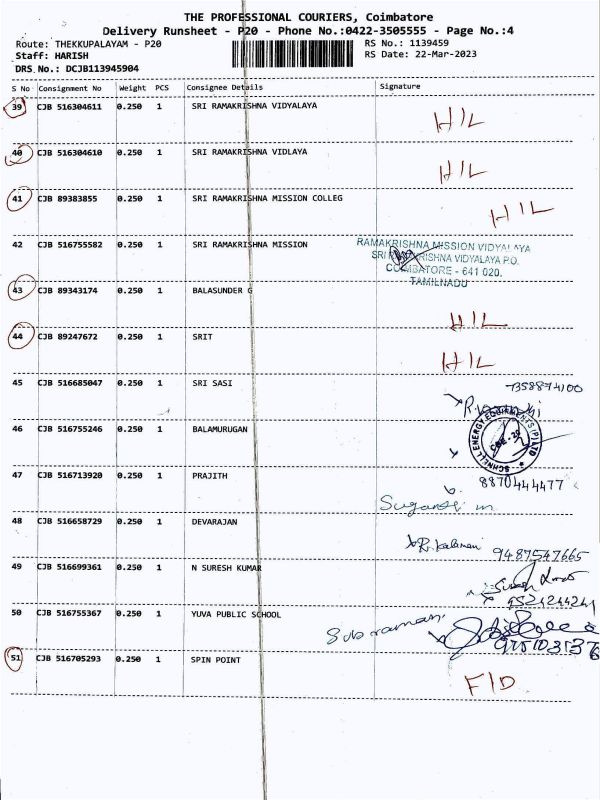 THE PROFESSIONAL COURIERS, Coimbatore
Delivery Runsheet - P20 - Phone No.:0422-3505555 - Page No.:4
Route: THEKKUPALAYAM - P20
RS No.: 1139459
Staff: HARISH
RS Date: 22-Mar-2023
DRS No.: DCJB113945904
S No Consignment No Weight PCS Consignee Details Signature
39 CJB 516304611 0.250 1 SRI RAMAKRISHNA VIDYALAYA H/L
40 CJB 516304610 0.250 1 SRI RAMAKRISHNA VIDLAYA H/L
41 CJB 89383855 0.250 1 SRI RAMAKRISHNA MISSION COLLEG H/L
42 CJB 516755582 0.250 1 SRI RAMAKRISHNA MISSION
RAMAKRISHNA MISSION VIDYALAYA
SRI RAMAKRISHNA VIDYALAYA P.O.
COIMBATORE - 641 020.
TAMILNADU
43 CJB 89343174 0.250 1 BALASUNDER G H/L
44 CJB 89247672 0.250 1 SRIT H/L
45 CJB 516685047 0.250 1 SRI SASI
46 CJB 516755246 0.250 1 BALAMURUGAN
SCHNELL ENERGY EQUIPMENTS (P) LTD
47 CJB 516713920 0.250 1 PRAJITH 8870444477
48 CJB 516658729 0.250 1 DEVARAJAN
9487547665
49 CJB 516699361 0.250 1 N SURESH KUMAR
50 CJB 516755367 0.250 1 YUVA PUBLIC SCHOOL
51 CJB 516705293 0.250 1 SPIN POINT F/D